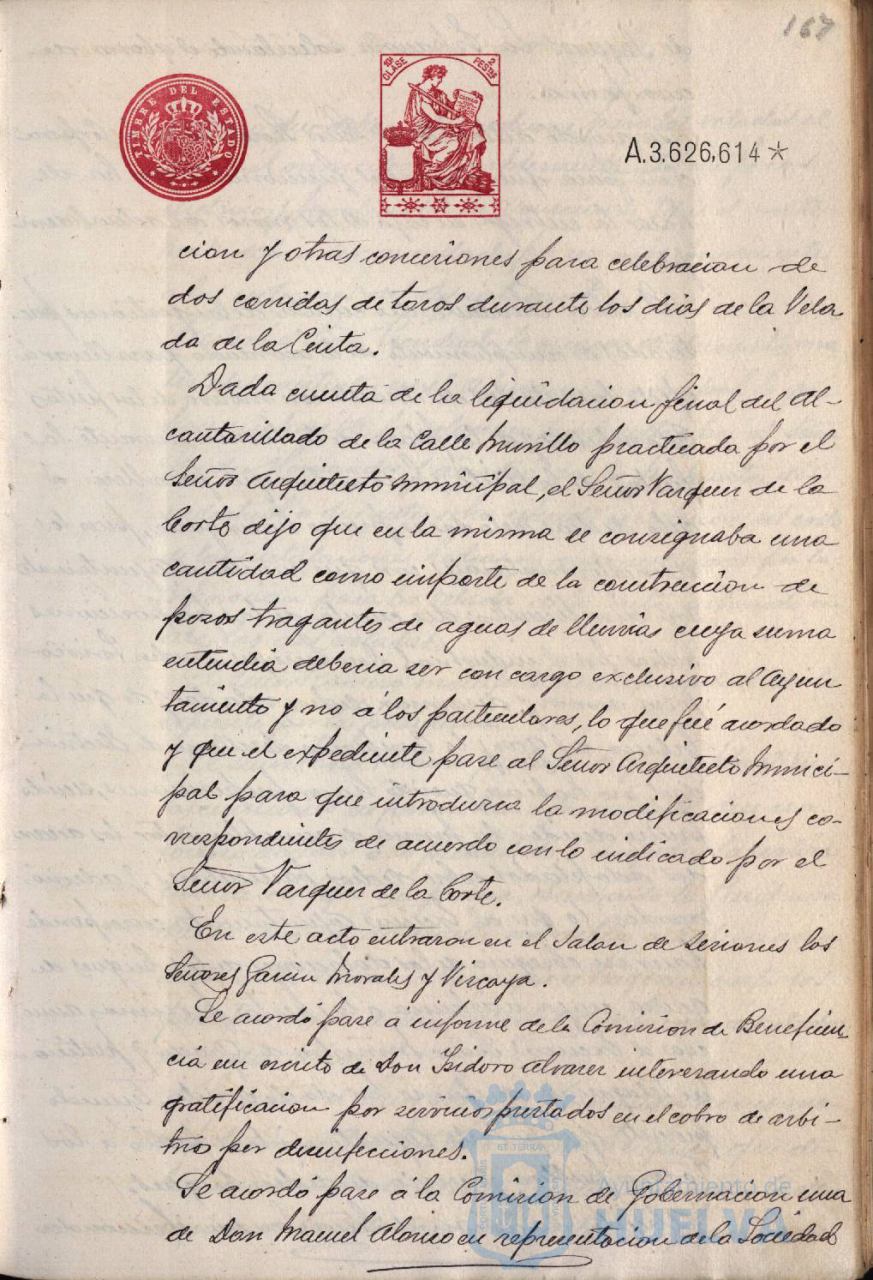 167
TIMBRE DEL ESTADO
10ª CLASE 2 PESTAS
A.3.626,614*
cion y otras concesiones para celebracion de
dos corridas de toros durante los dias de la Vela
da de la Cinta.
Dada cuenta de la liquidacion final del Al-
cantarillado de la Calle Murillo practicada por el
Señor Arquitecto Municipal, el Señor Vazquez de la
Corte dijo que en la misma se consignaba una
cantidad como importe de la construccion de
pozos tragantes de aguas de lluvias cuya suma
entendia deberia ser con cargo exclusivo al Ayun
tamiento y no á los particulares, lo que fué acordado
y que el expediente pase al Señor Arquitecto Munici-
pal para que introduzca la modificaciones co-
rrespondientes de acuerdo con lo indicado por el
Señor Vazquez de la Corte.
En este acto entraron en el Salon de sesiones los
Señores Garcia Morales y Vizcaya.
Se acordó pase á informe de la Comision de Beneficen
cia un escrito de Don Isidoro Alvarez interesando una
gratificacion por servicios prestados en el cobro de arbi-
trio por desinfecciones.
Se acordó pase á la Comision de Gobernacion una
de Don Manuel Alonso en representacion de la Sociedad
Ayuntamiento de
HUELVA